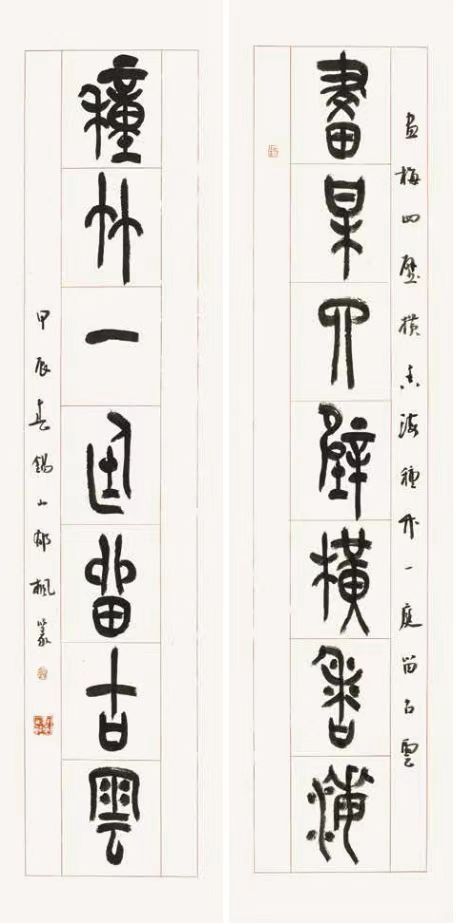 畫梅四壁橫香海種竹一庭留古雲
畫梅四壁橫香海
種竹一庭留古雲
甲辰春錫山郁楓篆